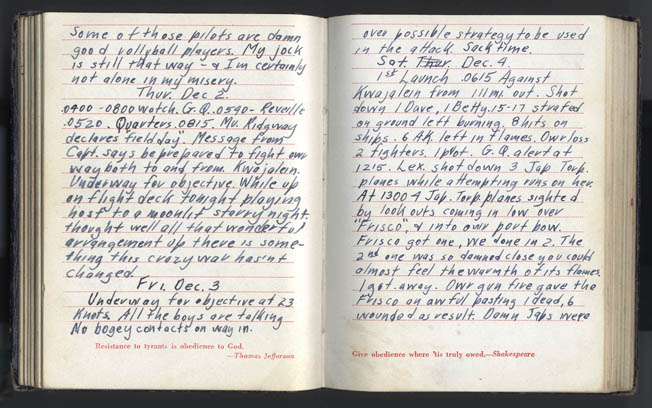 Some of those pilots are damn
good vollyball players. My jock
is still that way - & I'm certainly
not alone in my misery.
Thur. Dec 2.
0400-0800 watch. G.Q. 0540- Reveille
0520. Quarters. 0815. Mr. Ridgway
declares "field day". Message from
Capt. says be prepared to fight our
way both to and from Kwajalein.
Underway for objective. While up
on flight deck tonight playing
host to a moonlit starry night.
thought well all that wonderful
arrangement up there is some-
thing this crazy war hasn't
changed
Fri. Dec. 3
Underway for objective at 23
Knots. All the boys are talking
No bogey contacts on way in.
Resistance to tyrants is obedience to God.
—Thomas Jefferson
over possible strategy to be used
in the attack. Sack time.
Sat. Thur. Dec. 4.
1st Launch .0615 Against
Kwajalein from 111 mi. out. Shot
down 1 Dave, 1 Betty. 15-17 strafed
on ground left burning. 8 hits on
ships. 6 A.K. left in flames. Our loss
2 fighters, 1 pilot. G.Q. alert at
1215. Lex. shot down 3 Jap Torp.
planes while attempting runs on her.
At 1300 4 Jap. Torp. planes sighted
by look outs coming in low over
"Frisco", & into our port bow.
Frisco got one, we done in 2. The
2nd one was so damned close you could
almost feel the warmth of its flames.
1 got away. Owr gun fire gave the
Frisco an awful pasting 1 dead, 6
wounded as result. Damn Japs were
Give obedience where 'tis truly owed.—Shakespeare